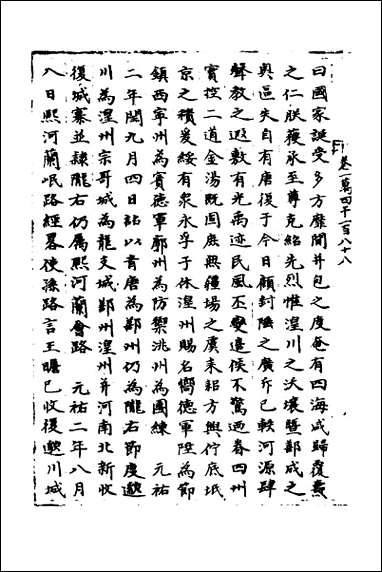 卷一萬四千一百八十八
曰國家誕受多方靡閒并包之度奄有四海咸歸覆燾
之仁朕獲承至尊克紹先烈惟湟川之沃壤暨鄯戎之
奧區失自有唐復于今日顧封陲之廣斥已軼河源肆
聲教之遐敷有光禹迹民風丕變邊候不驚迺眷四州
實控二道金湯既固庶無疆場之虞耒耜方興佇底坻
京之積爰綏有眾永孚于休湟州賜名嚮德軍陞為節
鎮西寧州為賓德軍廓州為防禦洮州為團練 元祐
二年閏九月四日詔以青唐為鄯州仍為隴右節度邈
川為湟州宗哥城為龍支城鄯州湟州并河南北新收
復城寨並隸隴右仍屬熙河蘭會路 元祐二年八月
八日熙河蘭岷路經畧使孫路言王贍已收復邈川城